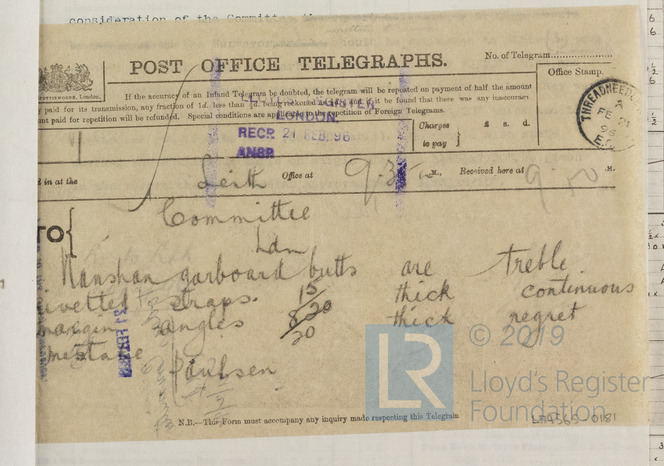 consideration of the Committee
POST OFFICE TELEGRAPHS.
No. of Telegram
Office Stamp.
If the accuracy of an Inland Telegram be doubted, the telegram will be repeated on payment of half the amount
paid for its transmission, any fraction of 1d. less than ½d. being reckoned as ½d.; and if it be found that there was any inaccuracy
ant paid for repetition will be refunded. Special conditions are applicable to the repetition of Foreign Telegrams.
LONDON.
RECR 21 FEB. 96
ANSR
Charges to pay } £ s. d.
THREADNEEDLE
A
FE 21
96
E.C.
d in at the Leith Office at M., Received here at M.
TO { Committee
Ldn
Nanshan garboard butts are treble
ivetted straps 15/20 thick continuous
margin angles 8/20 thick regret
mestake
Paulsen
N.B.—This Form must accompany any inquiry made respecting this Telegram
© 2019
LR
Lloyd's Register
Foundation